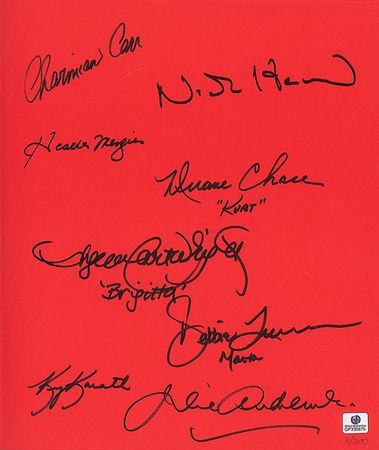 Charmian Carr
Nich Hammond
Heather Menzies
Duane Chase
"Kurt"
Angela Cartwright
"Brigitta"
Debbie Turner
Marta
Kym Karath
Julie Andrews
GP330875
3/200